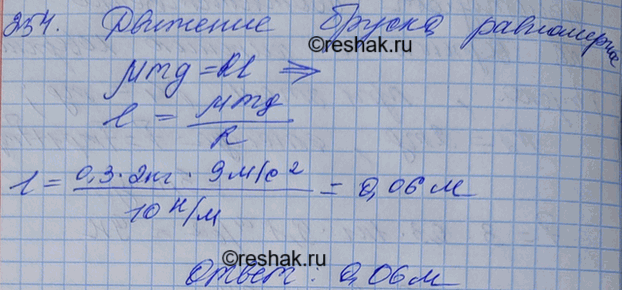 354. Движение бруска равномерно
©reshak.ru
μmg = kl ⇒
l = μmg / k
l = 0,3 · 2кг · 9 м/с² / 10 н/м = 0,06 м
©reshak.ru
Ответ: 0,06 м